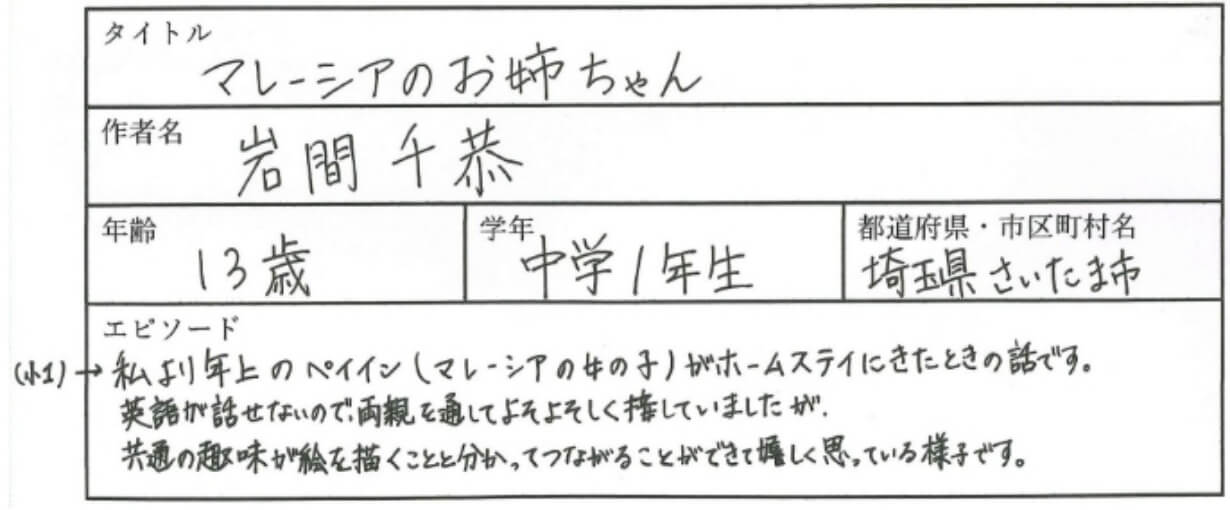 タイトル
マレーシアのお姉ちゃん
作者名
岩間 千恭
年齢
13歳
学年
中学1年生
都道府県・市区町村名
埼玉県さいたま市
エピソード
(小1)→私より年上のペイイン(マレーシアの女の子)がホームステイにきたときの話です。
英語が話せないので、両親を通してよそよそしく接していましたが、
共通の趣味が絵を描くことと分かってつながることができて嬉しく思っている様子です。